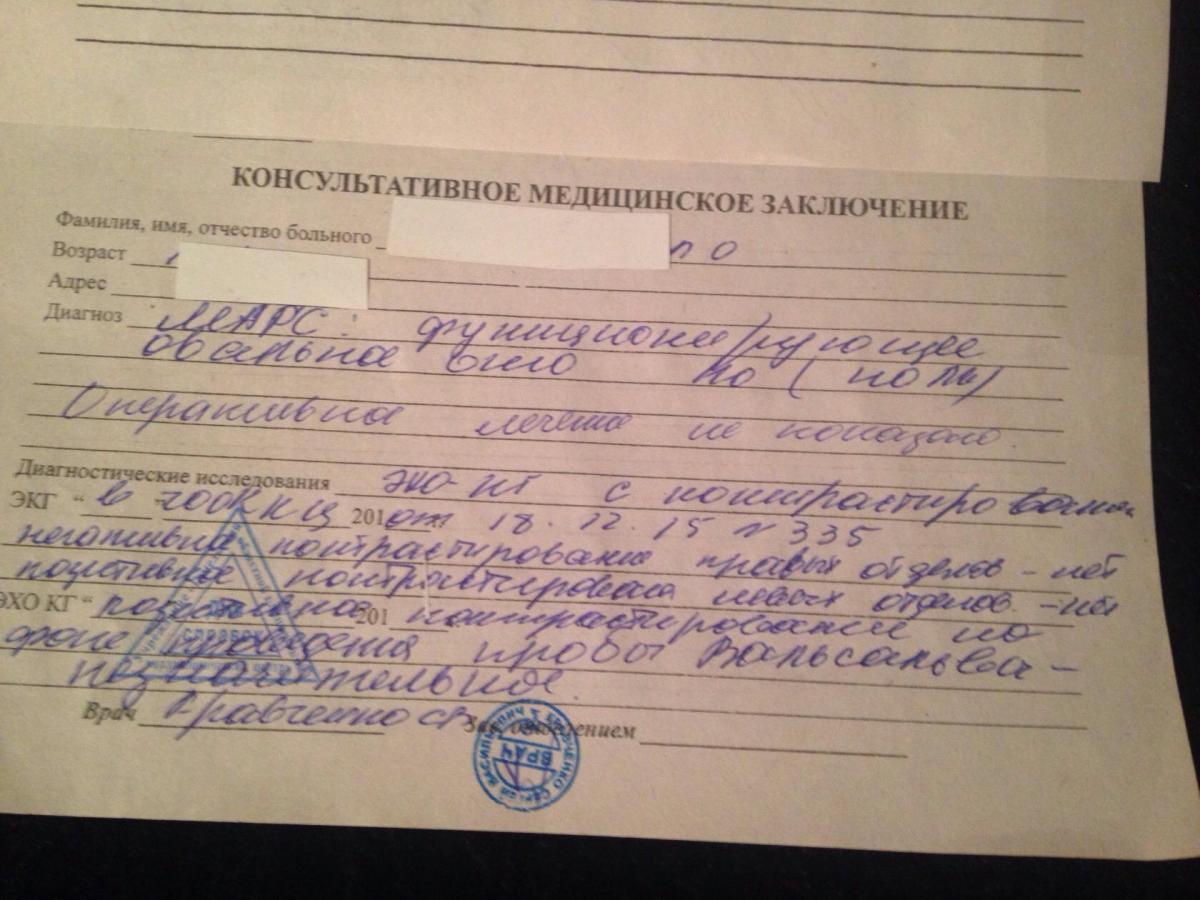 КОНСУЛЬТАТИВНОЕ МЕДИЦИНСКОЕ ЗАКЛЮЧЕНИЕ
Фамилия, имя, отчество больного
Возраст
Адрес
Диагноз МАРС: функционирующее
овальное окно
Оперативное лечение не показано.
Диагностические исследования ЭХО-КГ с контрастированием
ЭКГ “ в 201 от 18.12.15 N 335
негативное контрастирование правых отделов - нет
позитивное контрастирование левых отделов - нет
ЭХО КГ “ 201 контрастирование на
фоне проведения пробы Вальсальва -
незначительное.
Врач Кравченко СВ Зав. отделением
ВРАЧ